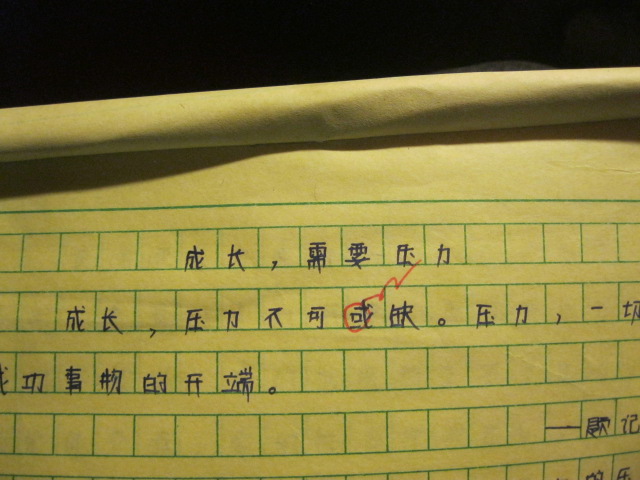 成长，需要压力
成长，压力不可或缺。压力，一切
成功事物的开端。
——题记
的压